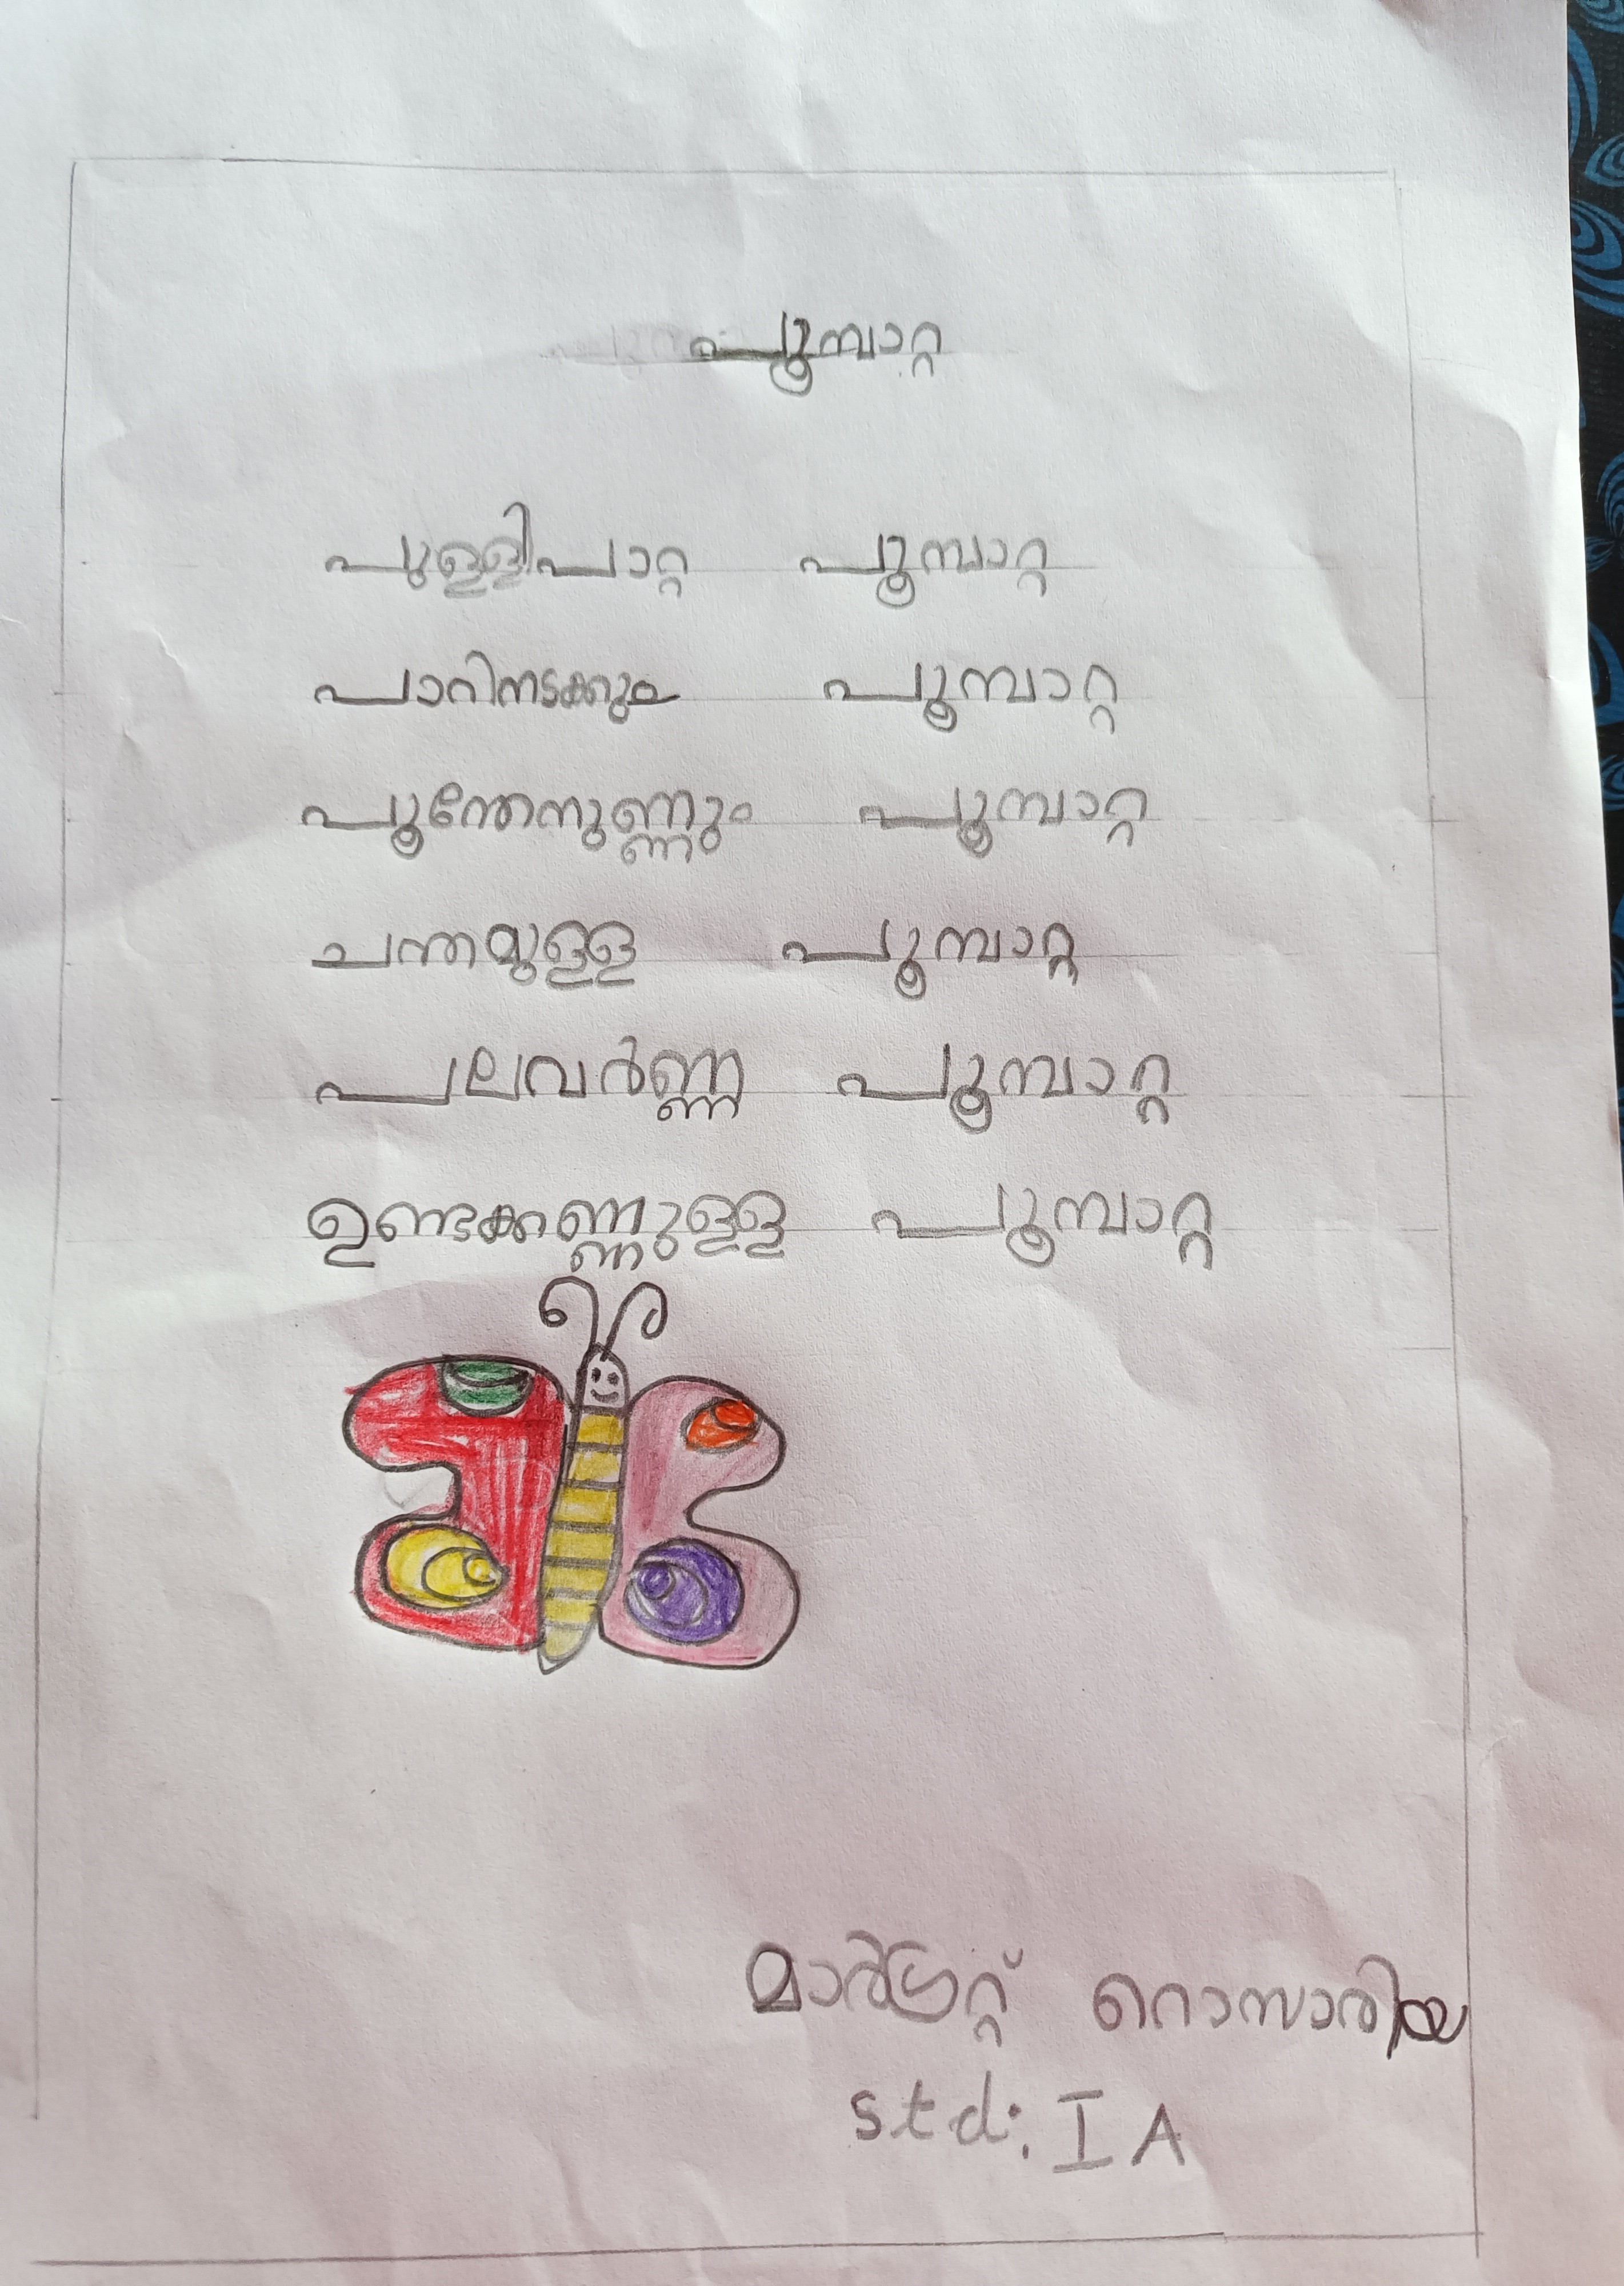 പൂമ്പാറ്റ
പുള്ളിപാറ്റ പൂമ്പാറ്റ
പാറിനടക്കും പൂമ്പാറ്റ
പൂന്തേനുണ്ണും പൂമ്പാറ്റ
ചന്തമുള്ള പൂമ്പാറ്റ
പലവർണ്ണ പൂമ്പാറ്റ
ഉണ്ടക്കണ്ണുള്ള പൂമ്പാറ്റ
റൊസാരിയ
std: I A